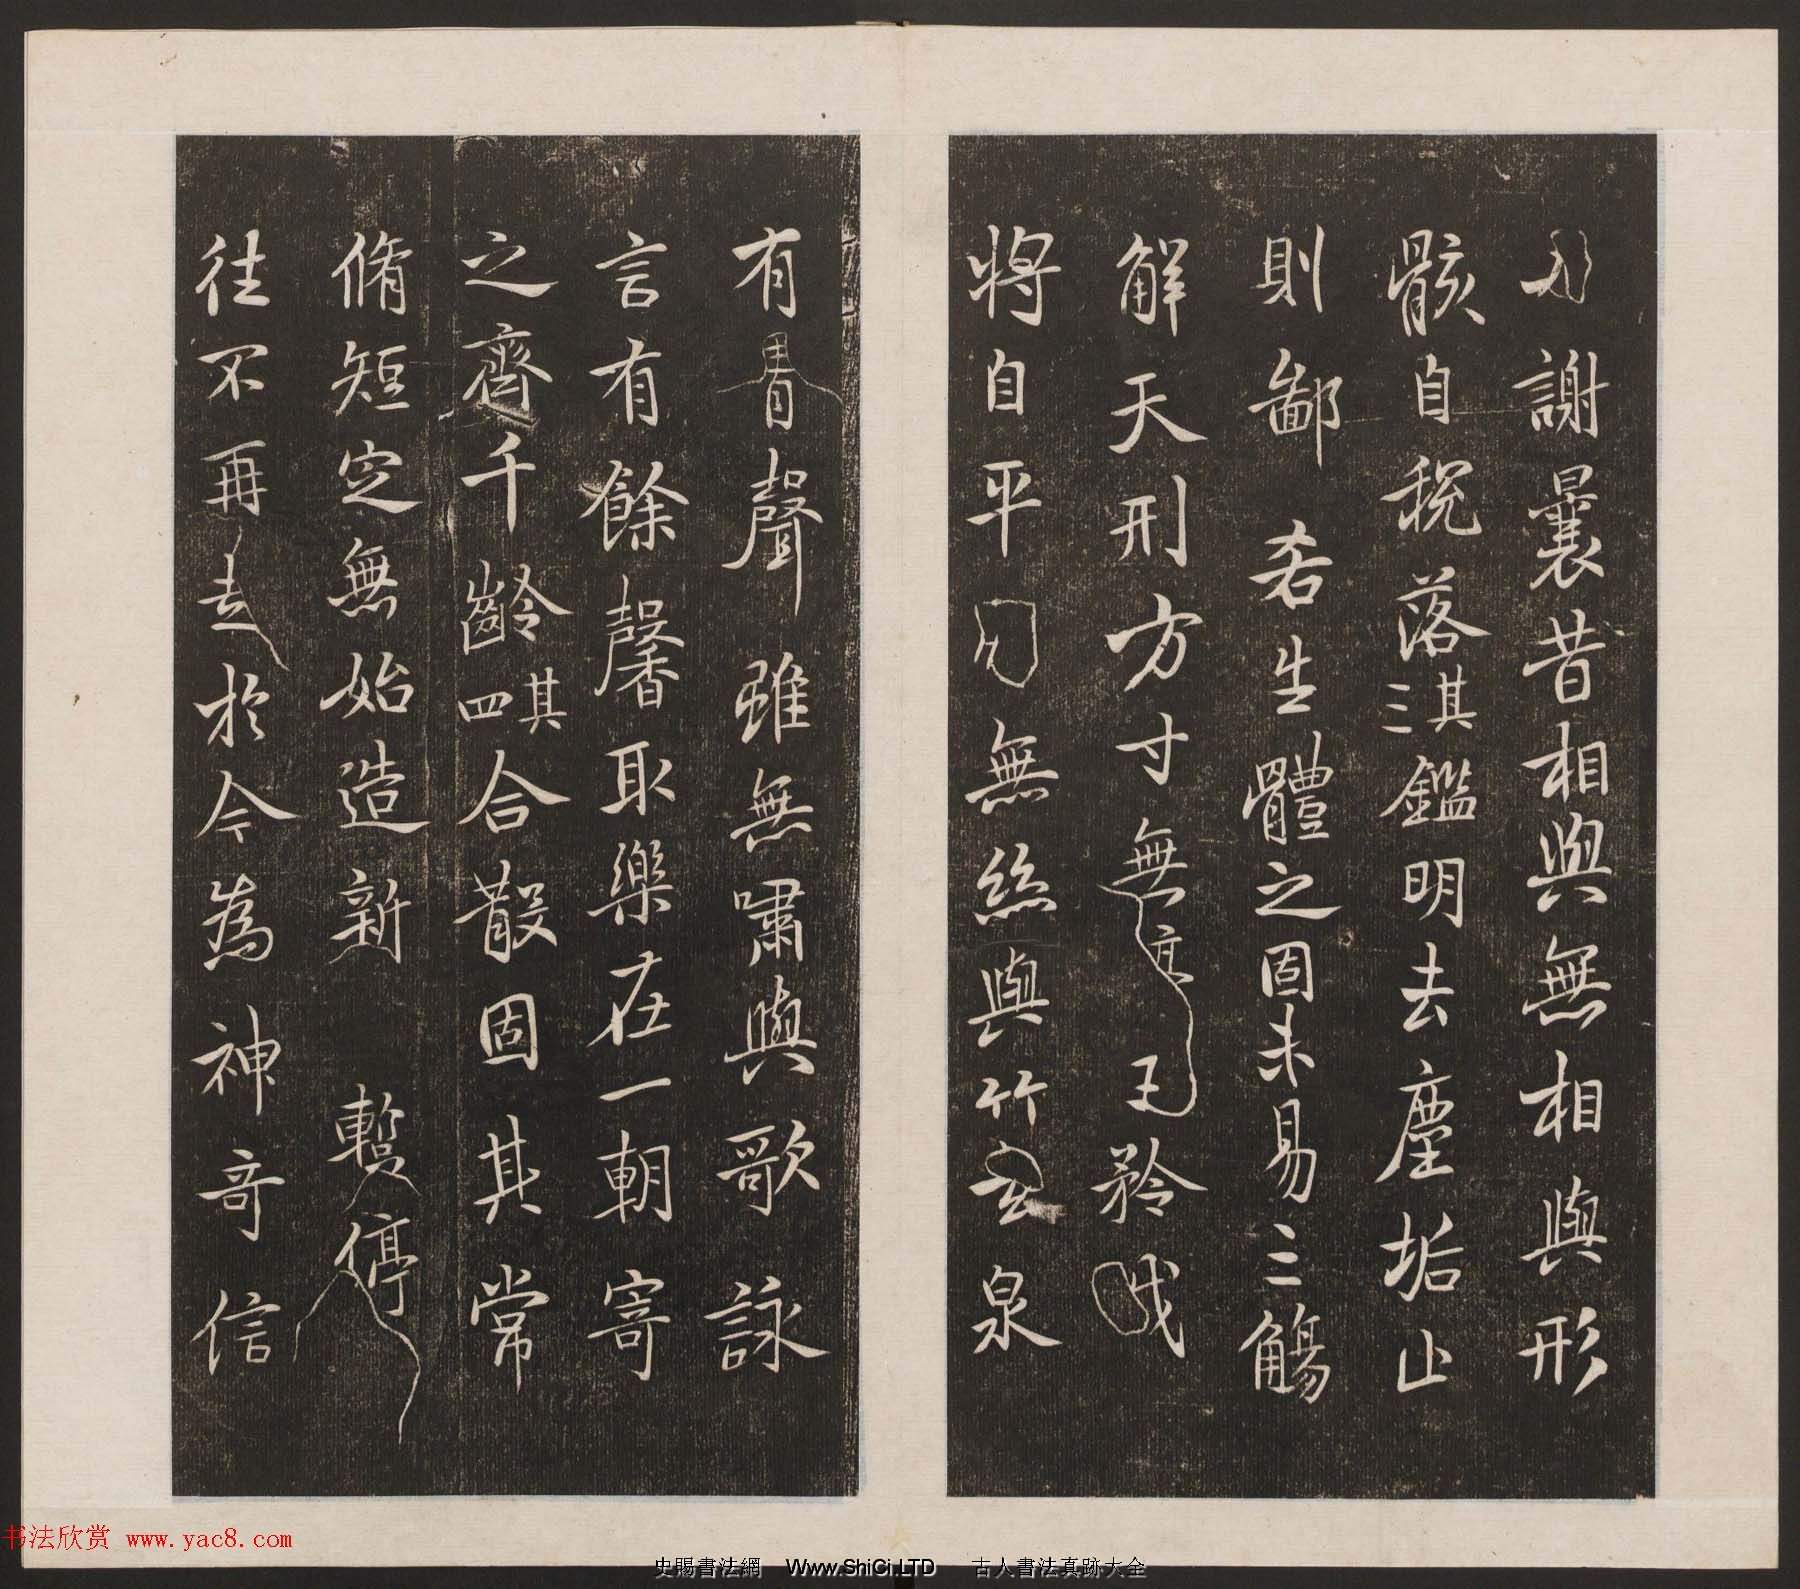 謝曩昔相與無相與形
骸自稅落其三鑑明去塵垢止
則鄙吝生體之固未易三觴
解天刑方寸無王矜戕
將自平無絲與竹玄泉
有聲雖無嘯與歌詠
言有餘馨取樂在一朝寄
之齊千齡其四合散固其常
脩短定無始造新暫停
往不再去於今為神奇信
书法欣赏 www.yac8.com
史賜書法網 Www.ShiCi.LTD 古人書法真跡大全